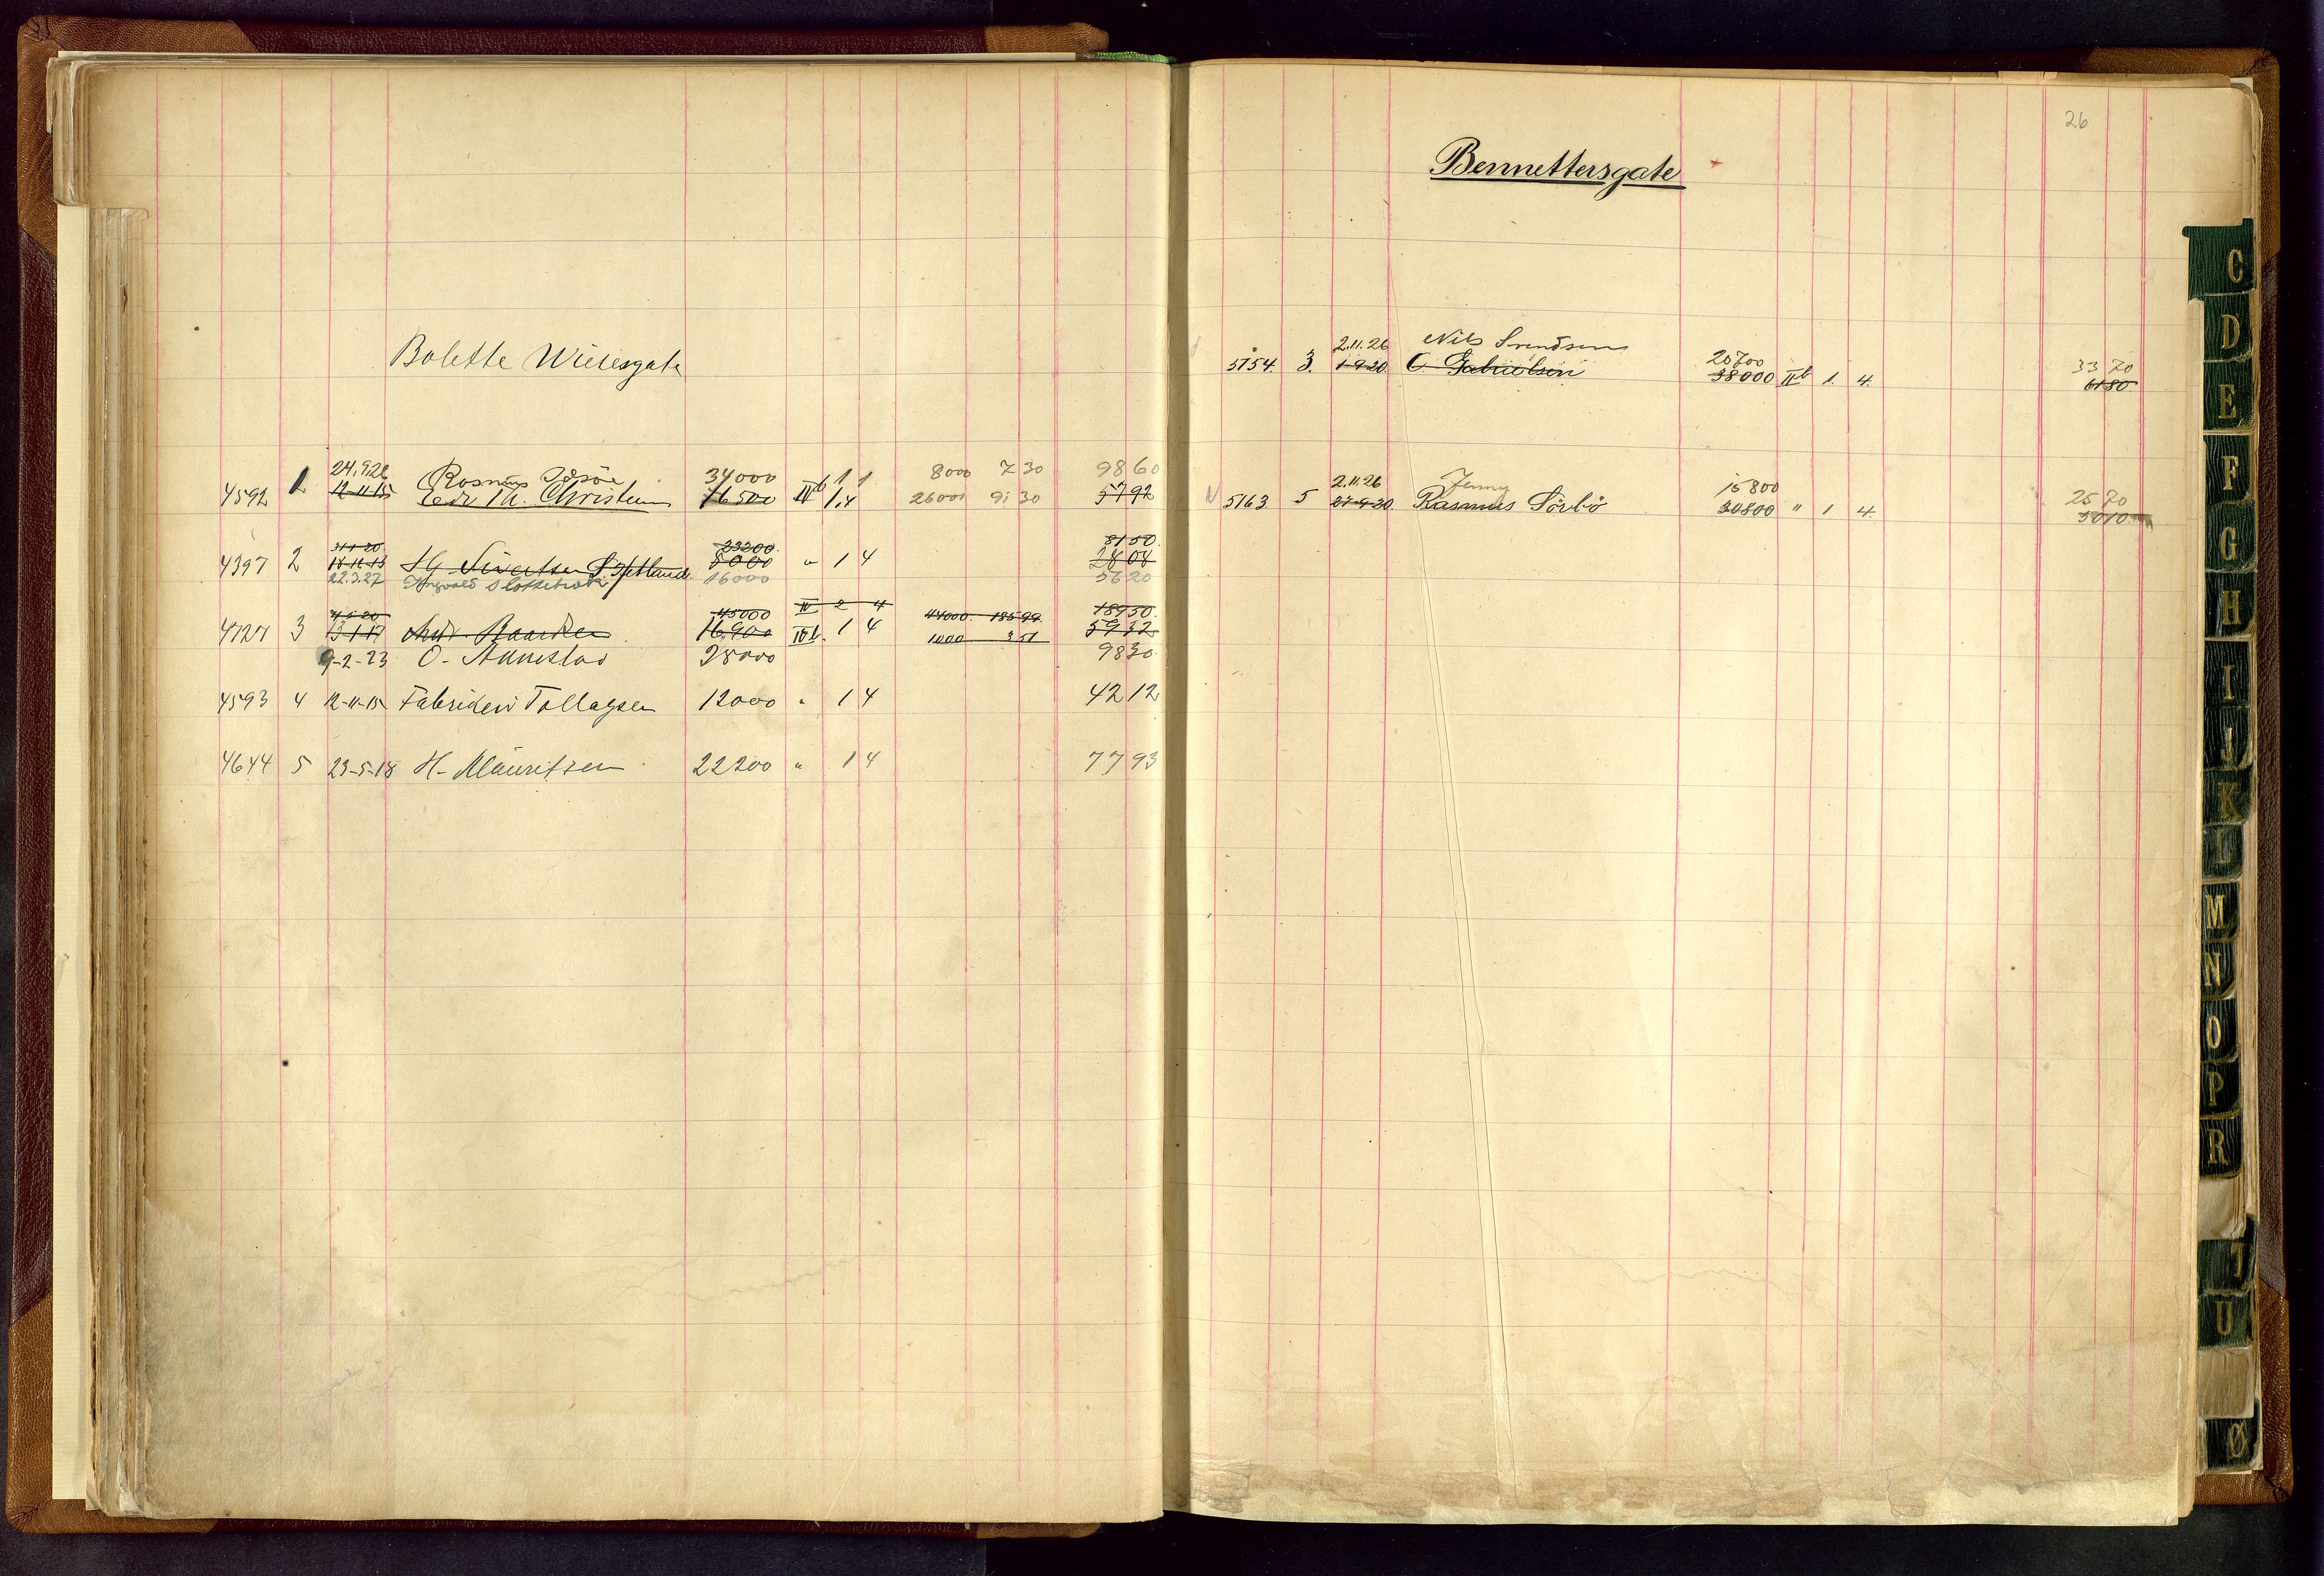 Bolette Wielesgate
24.9.26 Rasmus Idsöe 34000 1 1 8000 7 30 98 60
4592 1 12-11-15 Chr. Christensen 16500 III b 1.4 26000 91 30 57 92
31-1-20 23200 81 50
4397 2 18-12-13 Sivertsen Hetland 8000 " 1 4 28 08
22.3.27 Ingvald Slottebrok 16000 56 20
4-5-20 45000 IV 2 4 44000 185 99 189 50
4727 3 13-1-17 Andr. 16900 III b. 1 4 1000 3 51 59 32
9-2-23 O. Aunestad 28000 98 30
4593 4 12-11-15 Fabrikeier Tollagsen 12000 " 1 4 42 12
4644 5 23-5-18 H. Mauritzen 22200 " 1 4 77 93
26
Bennettersgate
2.11.26 Nils Svendsen 20700 33 70
5154. 3. 1-9-20 C. Gabrielsen 38000 II b 1. 4. 61 80.
2.11.26 Jenny 15800 25 70
N 5163 5 27-9-20. Rasmus Sörbö 30800 " 1 4. 50 10.
C
D
E
F
G
H
I
J
K
L
M
N
O
P
R
T
U
Ø